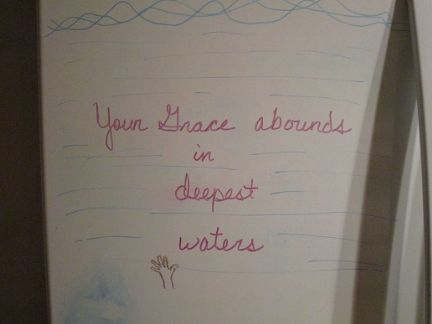 Your Grace abounds
in
deepest
waters